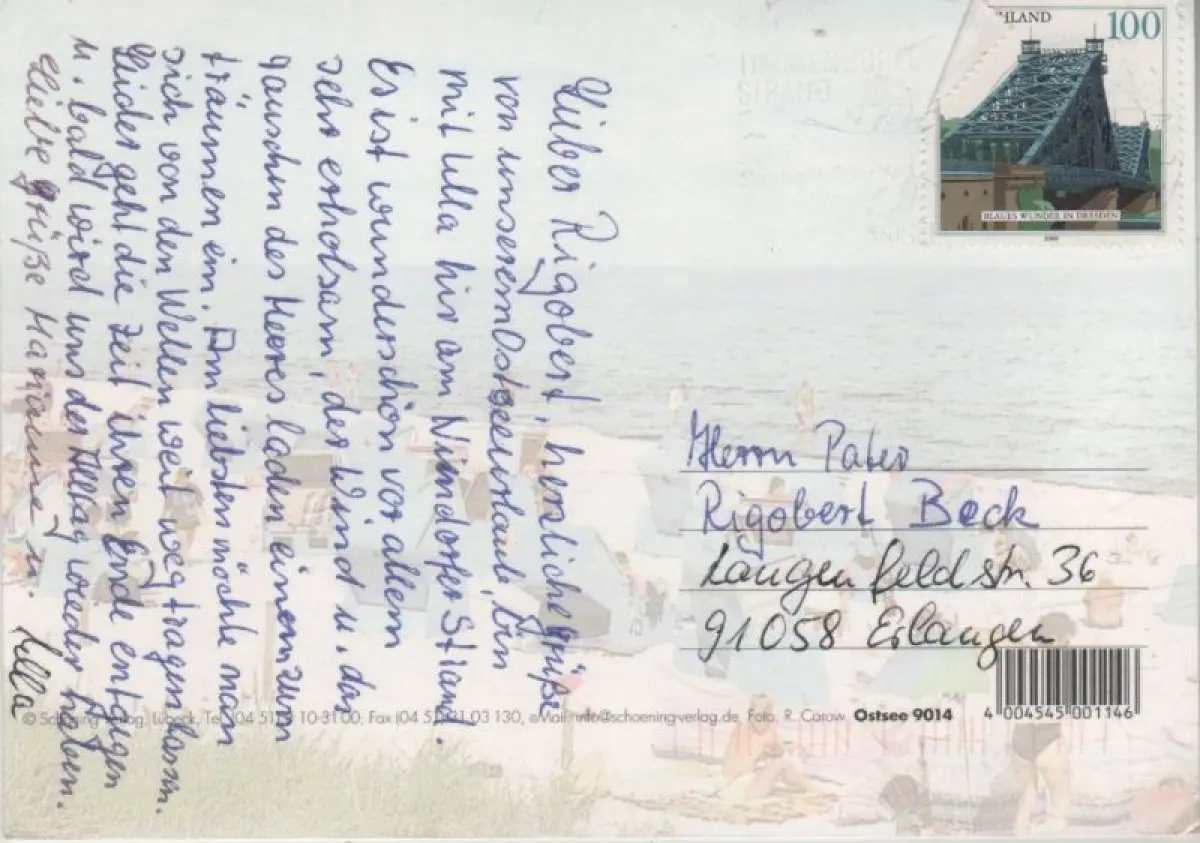 Lieber Rigobert, herzliche Grüße
von unserem Ostseeurlaub, bin
mit Ulla hir am Nimdorfer Strand.
Es ist wunderschön vor allem
sehr erholsam, der Wind u. das
rauschen des Meeres laden einem zum
träumen ein. Am liebsten möchte man
sich von den Wellen weit weg tragen lassen.
Leider geht die Zeit ihren Ende entgegen
u. bald wird uns der Alltag wieder haben.
Liebe Grüße Marianne u.
Ulla
HLAND
100
BLAUES WUNDER IN DRESDEN
2000
Herrn Pater
Rigobert Beck
Langenfeldstr. 36
91058 Erlangen
© Schöning Verlag, Lübeck, Tel. (04 51) 3 10-31 00, Fax (04 51) 31 03 130, eMail: info@schoening-verlag.de, Foto: R. Carow Ostsee 9014
4 004545 001146